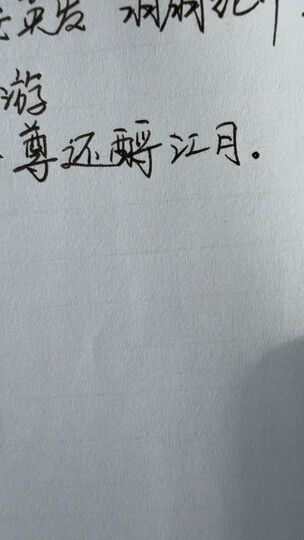 英发
游
尊还酹江月.